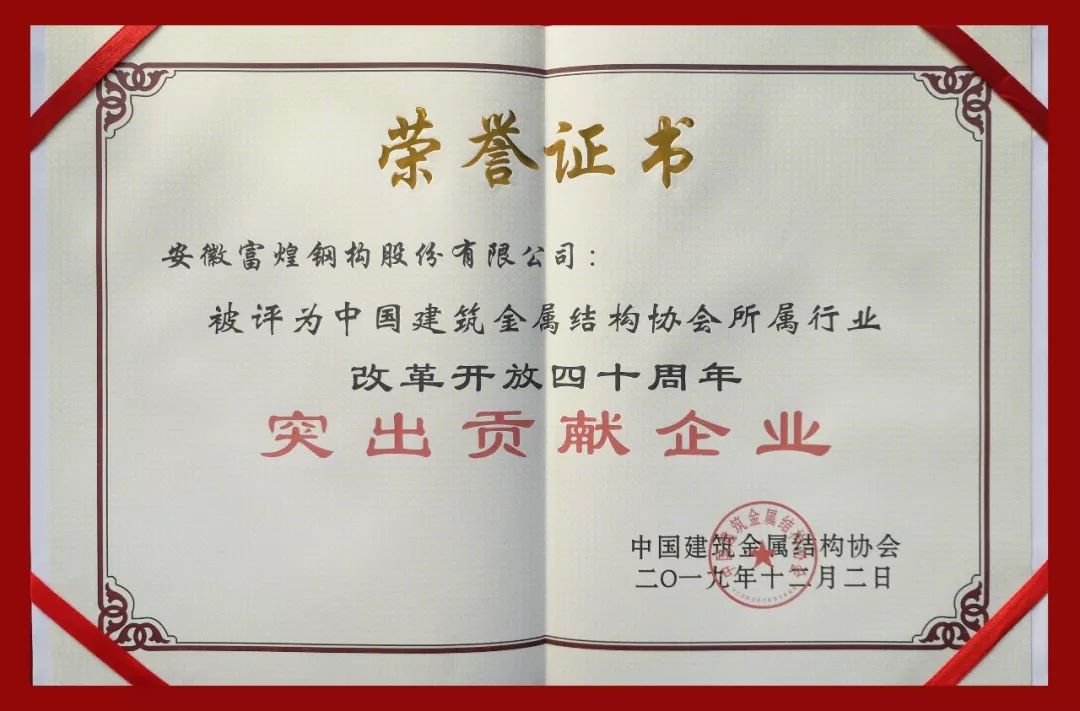 荣誉证书
安徽富煌钢构股份有限公司：
被评为中国建筑金属结构协会所属行业
改革开放四十周年
突出贡献企业
中国建筑金属结构协会
二〇一九年十二月二日
中国建筑金属结构协会